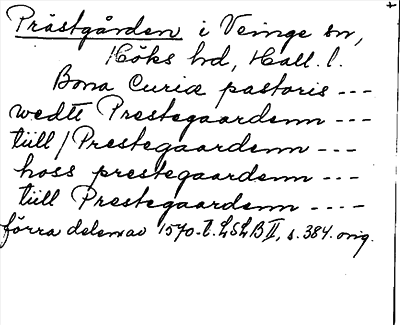 Prästgården i Veinge sn,
Höks hd, Hall. l.
Bona Curiæ pastoris ---
wedtt Prestegaardenn ---
tiill / Prestegaardenn ---
hoss prestegaardenn ---
tiill Prestegaardenn ----
förra delen av 1570-t. LSLB II, s. 384. orig.